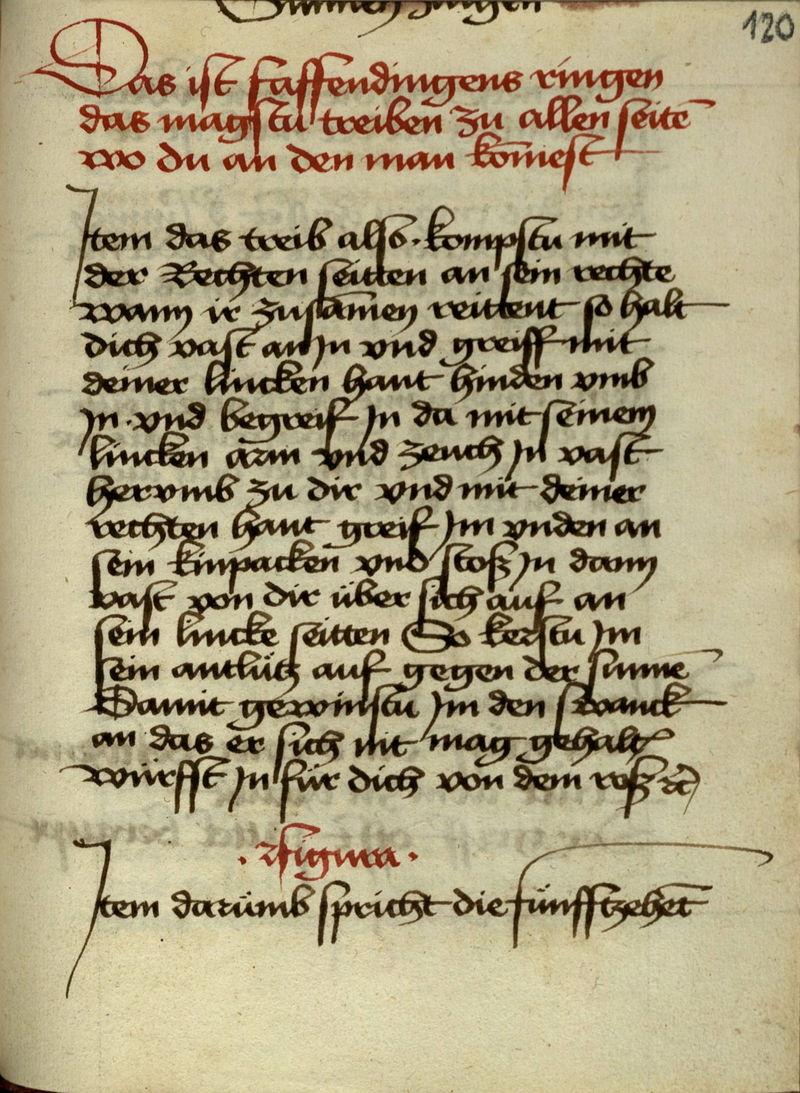 120
Das ist faffendingens ringen
das magstu treiben zu allen seitē
wo du an den man kom̄est
Item das treib also · kompstu mit
der Rechten seitten an sein rechte
wann ir zusam̄en reittent so halt
dich vast an In vnd greiff mit
deiner lincken hant hinden vmb
In · vnd begreif In da mit seinem
lincken arm vnd zeuch In vast
hervmb zu dir vnd mit deiner
rechten hant greif Im vnden an
sein kinpacken vnd stoß In dann
vast von dir über sich auf an
sein lincke seitten So kerstu Im
sein antlütz auf gegen der sunnē
Damit gewinstu Im den swanck
an das er sich nit mag gehaltn̄
würfft In für dich von dem roß ꝛc
· Figura ·
Item darümb spricht die fünfftzehet̄